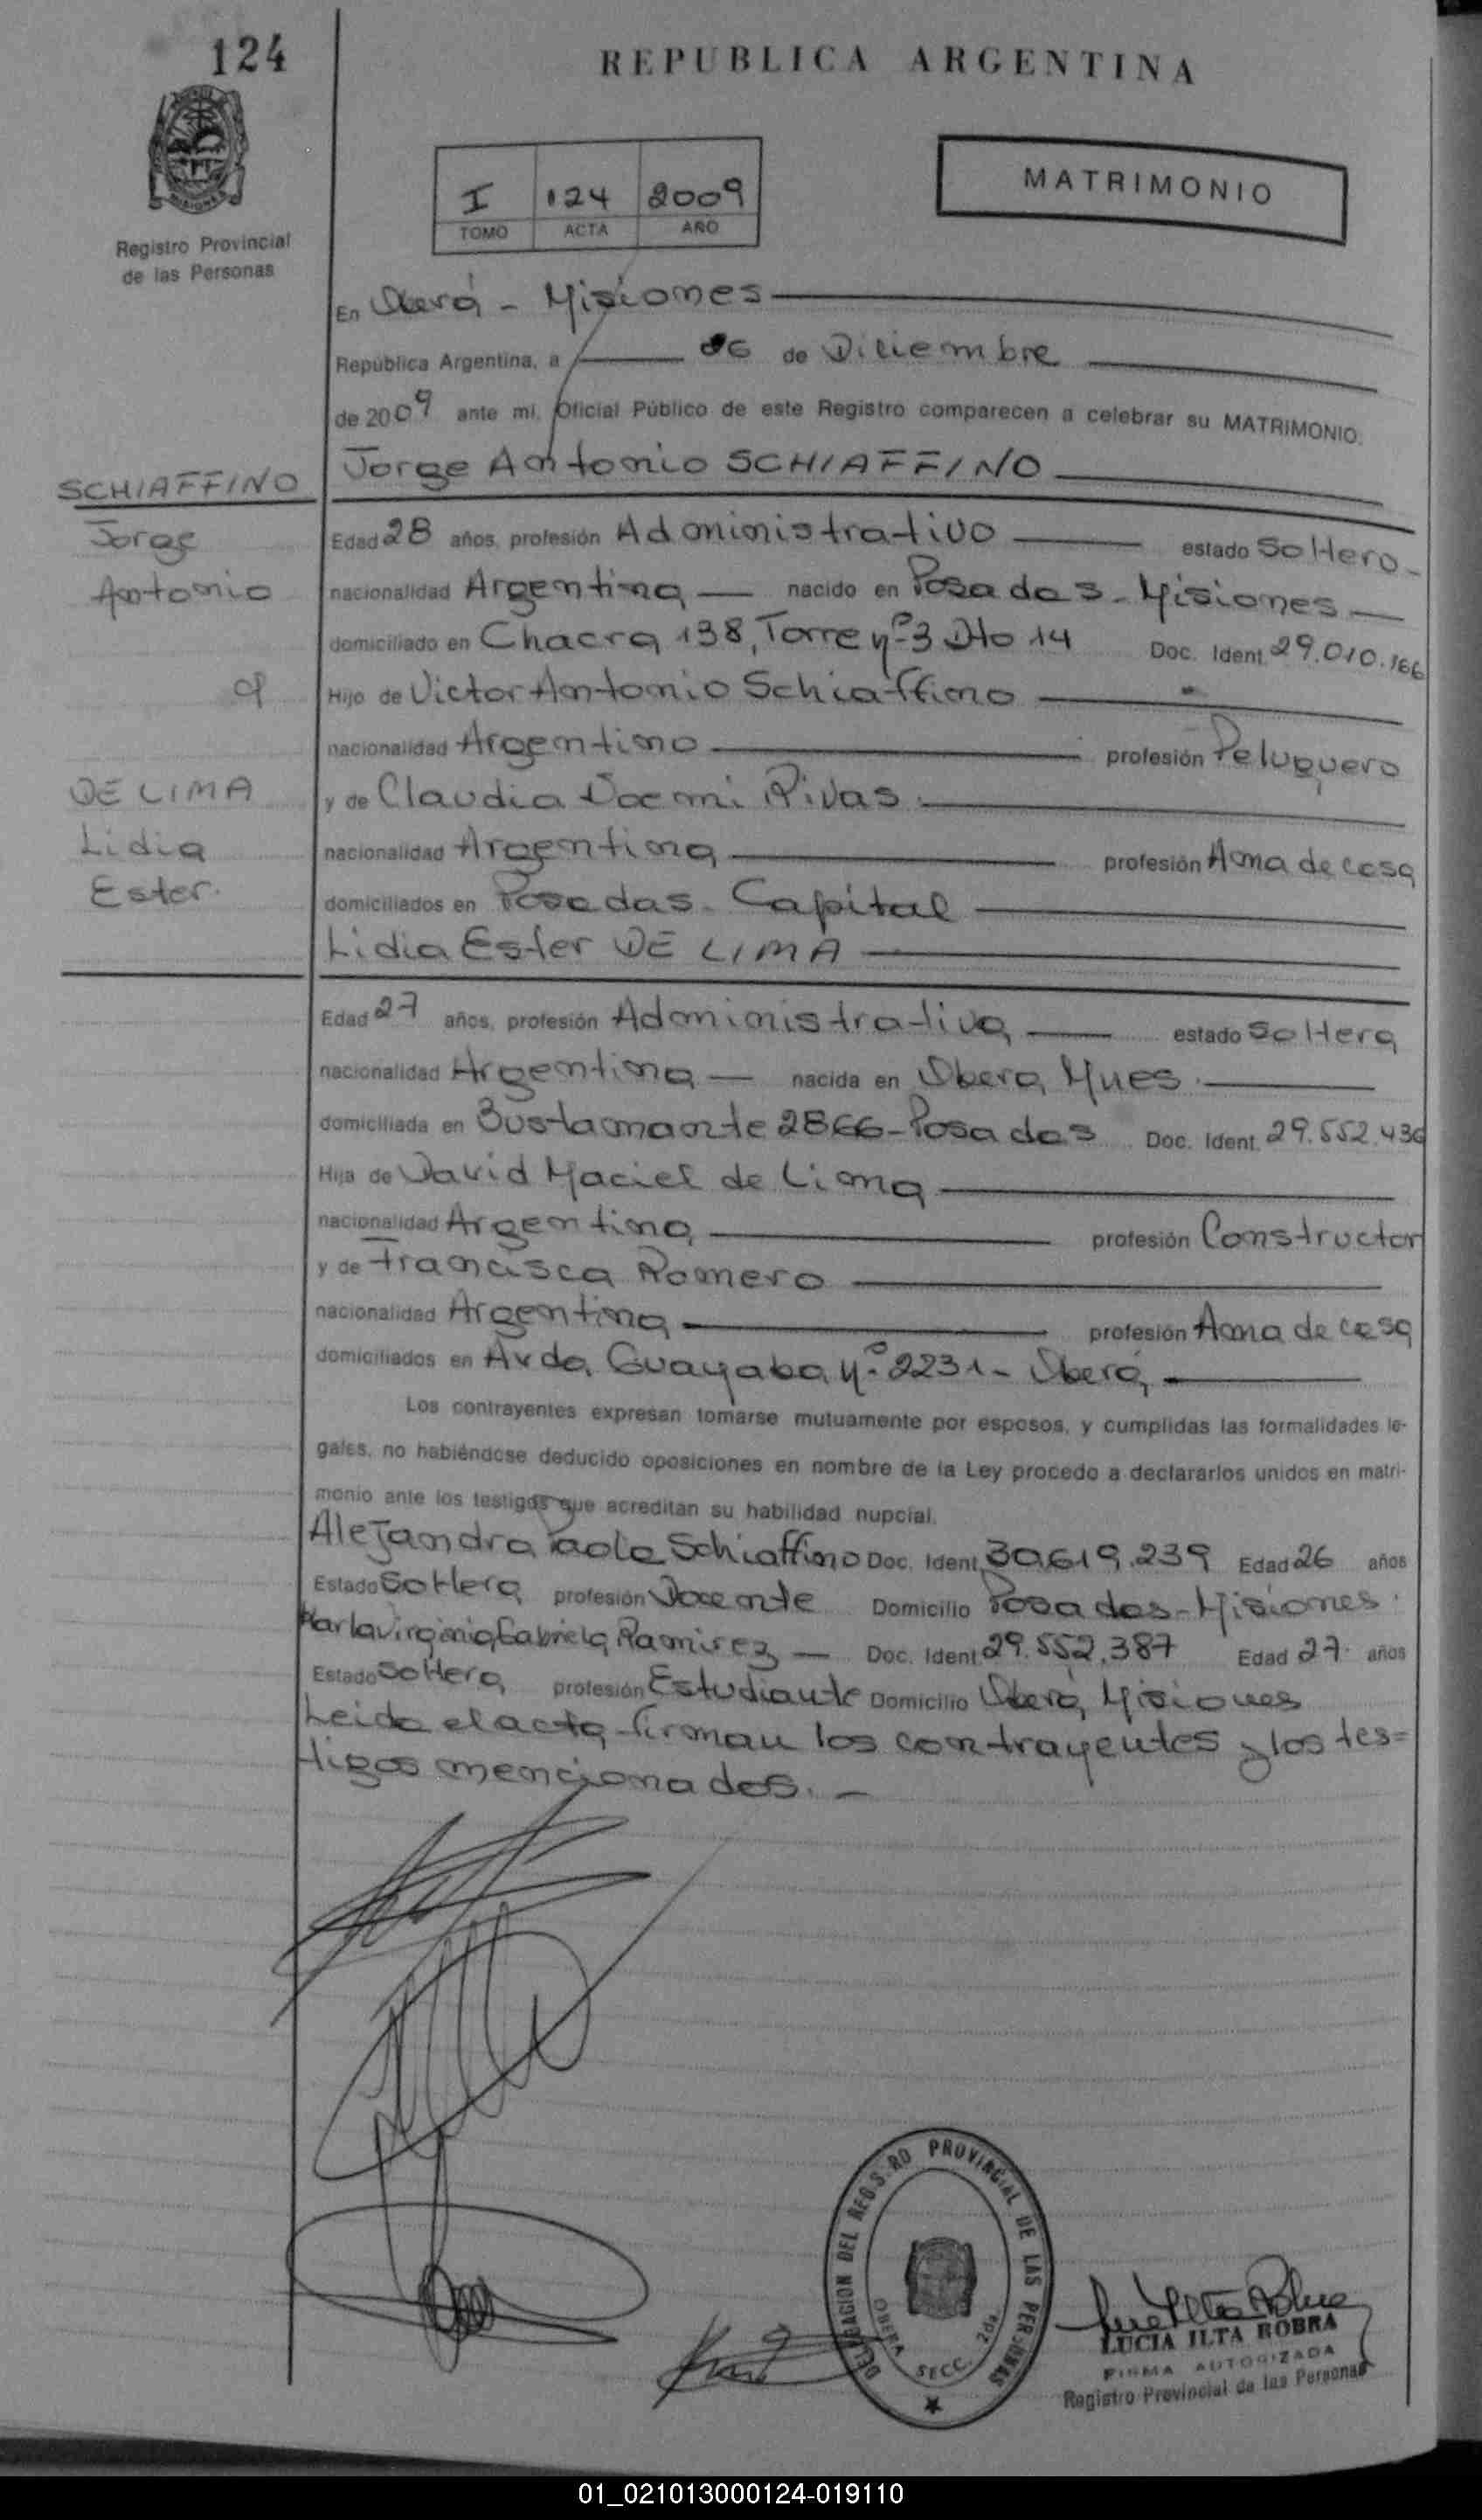 124
REPUBLICA ARGENTINA
MISIONES
Registro Provincial
de las Personas
I 124 2009
TOMO ACTA AÑO
MATRIMONIO
En Oberá - Misiones
República Argentina, a 06 de Diciembre
de 2009 ante mi, Oficial Público de este Registro comparecen a celebrar su MATRIMONIO:
Jorge Antonio SCHIAFFINO
SCHIAFFINO
Jorge
Antonio
Edad 28 años, profesión Administrativo estado Soltero
nacionalidad Argentina nacido en Posadas - Misiones
domiciliado en Chacra 138, Torre nº 3 Dto 14 Doc. Ident. 29.010.166
Hijo de Victor Antonio Schiaffino
nacionalidad Argentino profesión Peluquero
DE LIMA
Lidia
Ester.
y de Claudia Noemi Rivas.
nacionalidad Argentina profesión Ama de casa
domiciliados en Posadas - Capital
Lidia Ester DE LIMA
Edad 27 años, profesión Administrativa estado Soltera
nacionalidad Argentina nacida en Obera, Mnes.
domiciliada en Bustamante 2866 - Posadas Doc. Ident. 29.552.436
Hija de David Maciel de Lima
nacionalidad Argentina profesión Constructor
y de Francisca Romero
nacionalidad Argentina profesión Ama de casa
domiciliados en Avda. Guayaba nº 2231 - Oberá,
Los contrayentes expresan tomarse mutuamente por esposos, y cumplidas las formalidades le-
gales, no habiéndose deducido oposiciones en nombre de la Ley procedo a declararlos unidos en matri-
monio ante los testigos que acreditan su habilidad nupcial.
Alejandra Paola Schiaffino Doc. Ident. 30.619.239 Edad 26 años
Estado Soltera profesión Docente Domicilio Posadas - Misiones.
Karla Virginia Gabriela Ramirez Doc. Ident. 29.552.387 Edad 27 años
Estado Soltera, profesión Estudiante Domicilio Oberá, Misiones
Leida el acta firman los contrayentes y los tes=
tigos mencionados. -
DELEGACION DEL REGISTRO PROVINCIAL DE LAS PERSONAS
OBERA SECC. 2da
LUCIA ILTA ROBRA
FIRMA AUTORIZADA
Registro Provincial de las Personas
01_021013000124-019110